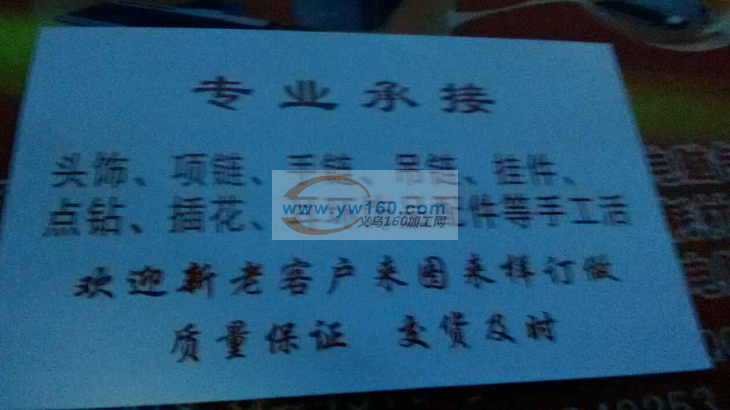 专业承接
头饰、项链、手链、吊链、挂件、
点钻、插花、件等手工活
www.yw160.com
义乌160加工网
欢迎新老客户来图来样订做
质量保证 交货及时